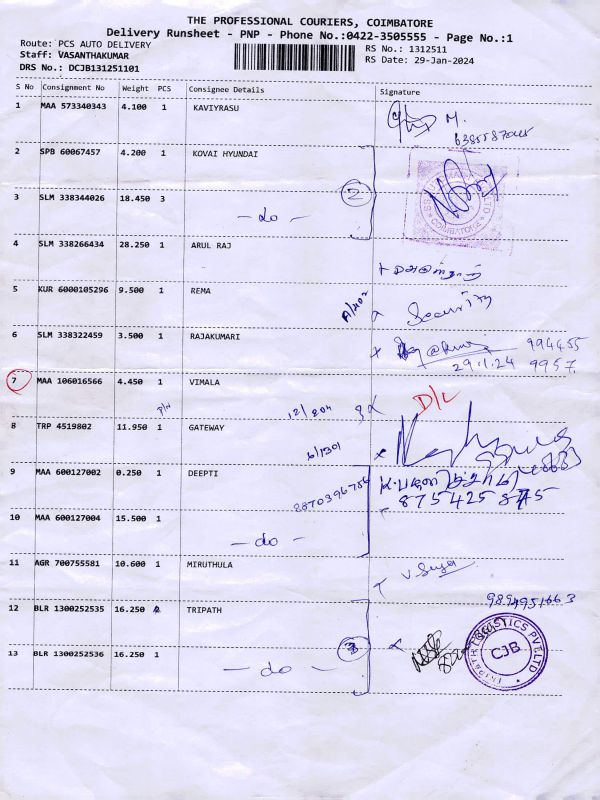 THE PROFESSIONAL COURIERS, COIMBATORE
Delivery Runsheet - PNP - Phone No.:0422-3505555 - Page No.:1
Route: PCS AUTO DELIVERY RS No.: 1312511
Staff: VASANTHAKUMAR RS Date: 29-Jan-2024
DRS No.: DCJB131251101
S No Consignment No Weight PCS Consignee Details Signature
1 MAA 573340343 4.100 1 KAVIYRASU
M.
2 SPB 60067457 4.200 1 KOVAI HYUNDAI
COIMBATORE
3 SLM 338344026 18.450 3 2
- do -
4 SLM 338266434 28.250 1 ARUL RAJ
5 KUR 6000105296 9.500 1 REMA A/202 Security
6 SLM 338322459 3.500 1 RAJAKUMARI 994455
29.1.24 9957
7 MAA 106016566 4.450 1 VIMALA D/L
P/N 12/204
8 TRP 4519802 11.950 1 GATEWAY
6/1301
9 MAA 600127002 0.250 1 DEEPTI 8870396756
10 MAA 600127004 15.500 1
- do -
11 AGR 700755581 10.600 1 MIRUTHULA
9894951663
12 BLR 1300252535 16.250 TRIPATH
CJB
13 BLR 1300252536 16.250 1 3
- do -